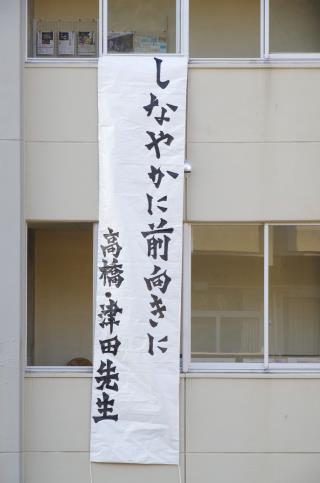 しなやかに前向きに
高橋・津田先生